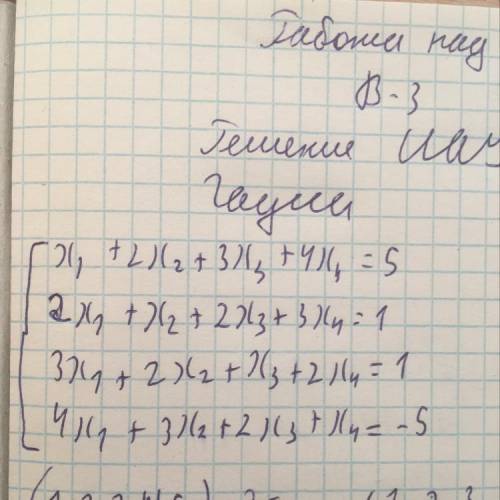 Работа над
В-3
Решение СЛАУ
Гаусса
x₁ + 2x₂ + 3x₃ + 4x₄ = 5
2x₁ + x₂ + 2x₃ + 3x₄ = 1
3x₁ + 2x₂ + x₃ + 2x₄ = 1
4x₁ + 3x₂ + 2x₃ + x₄ = -5